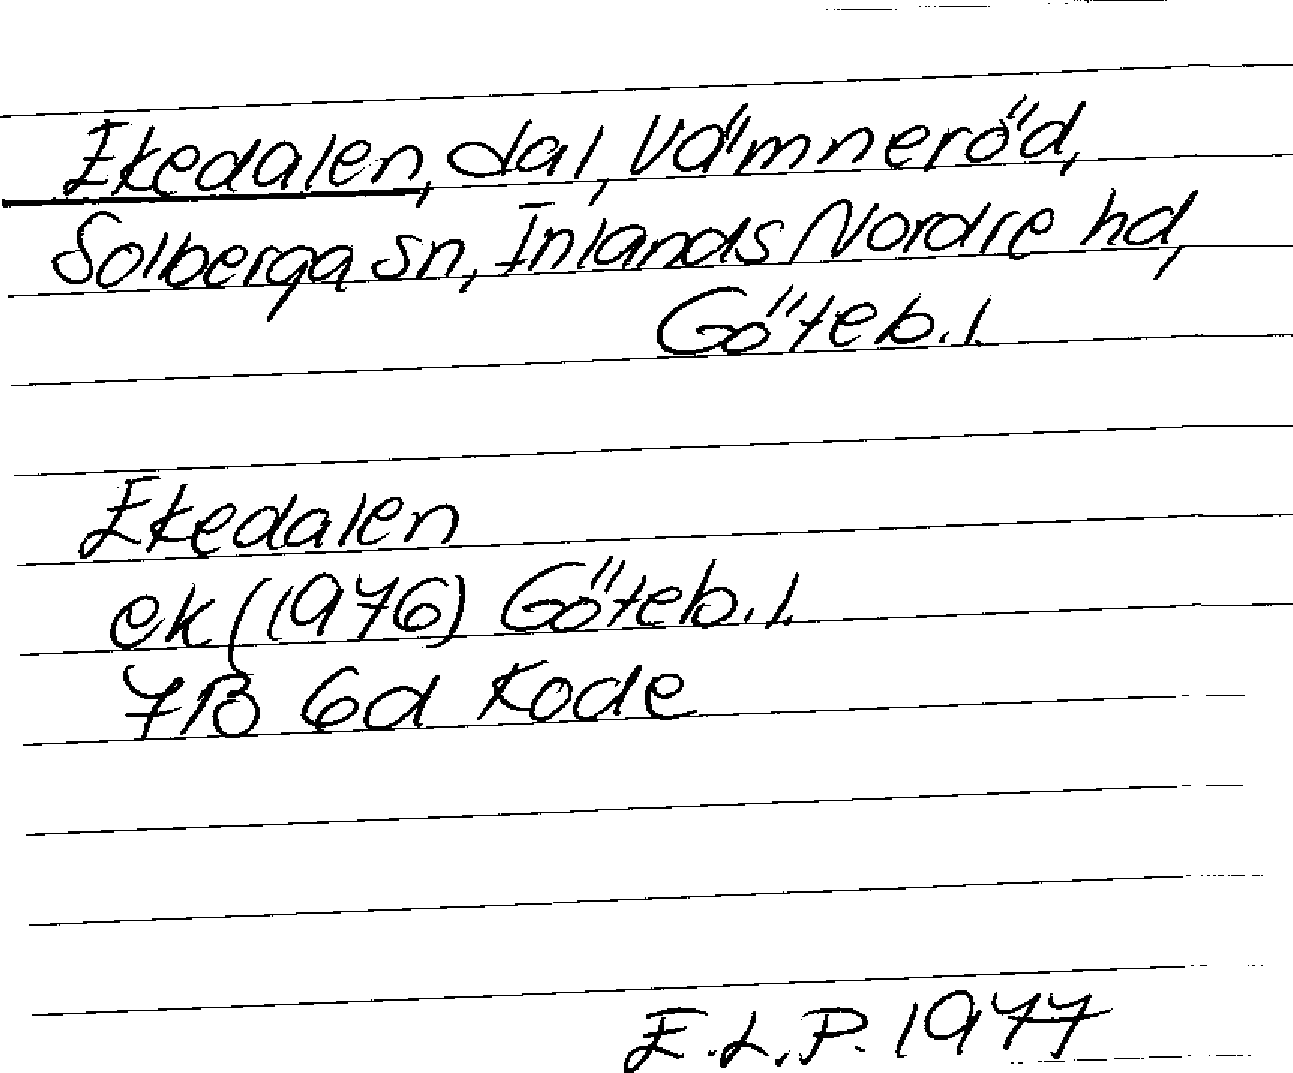 Ekedalen, dal, Vämneröd,
Solberga sn, Inlands Nordre hd,
Göteb.l.
Ekedalen
ek (1976) Göteb.l.
7B 6d Kode
E.L.P. 1977